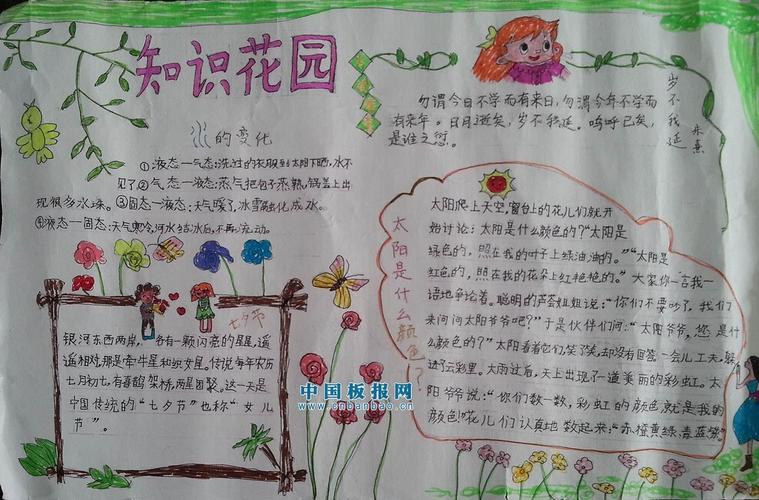 知识花园
水的变化
①液态—气态:洗过的衣服到太阳下晒,水不
见了②气态—液态:蒸气把包子蒸熟,锅盖上出
现很多水珠。③固态—液态:天气暖了,冰雪融化成水。
④液态—固态:天气寒冷,河水结冰后,不再流动。
七夕节
银河东西两岸,各有一颗闪亮的星星,遥
遥相对,那是牵牛星和织女星。传说每年农历
七月初七,有喜鹊架桥,两星团聚。这一天是
中国传统的“七夕节”也称“女儿
节”。
勿谓今日不学而有来日,勿谓今年不学而
有来年。日月逝矣,岁不我延。呜呼已矣,
是谁之愆。
岁不我延
朱熹
太阳是什么颜色!?
太阳爬上天空,窗台上的花儿们就开
始讨论:太阳是什么颜色的?“太阳是
绿色的,照在我的叶子上绿油油的。”“太阳是
红色的,照在我的花朵上红艳艳的。”大家你一言我一
语地争论着。聪明的芦荟姐姐说:“你们不要吵了,我们
来问问太阳爷爷吧?”于是伙伴们问:“太阳爷爷,您是什
么颜色的?”太阳看着它们,笑了笑,却没有回答一会儿工夫,躲
进了云彩里。大雨过后,天上出现了一道美丽的彩虹。太
阳爷爷说:“你们数一数,彩虹的颜色就是我的
颜色!花儿们认真地数起来:“赤橙黄绿青蓝紫。”
中国板报网
www.cnbanbao.cn